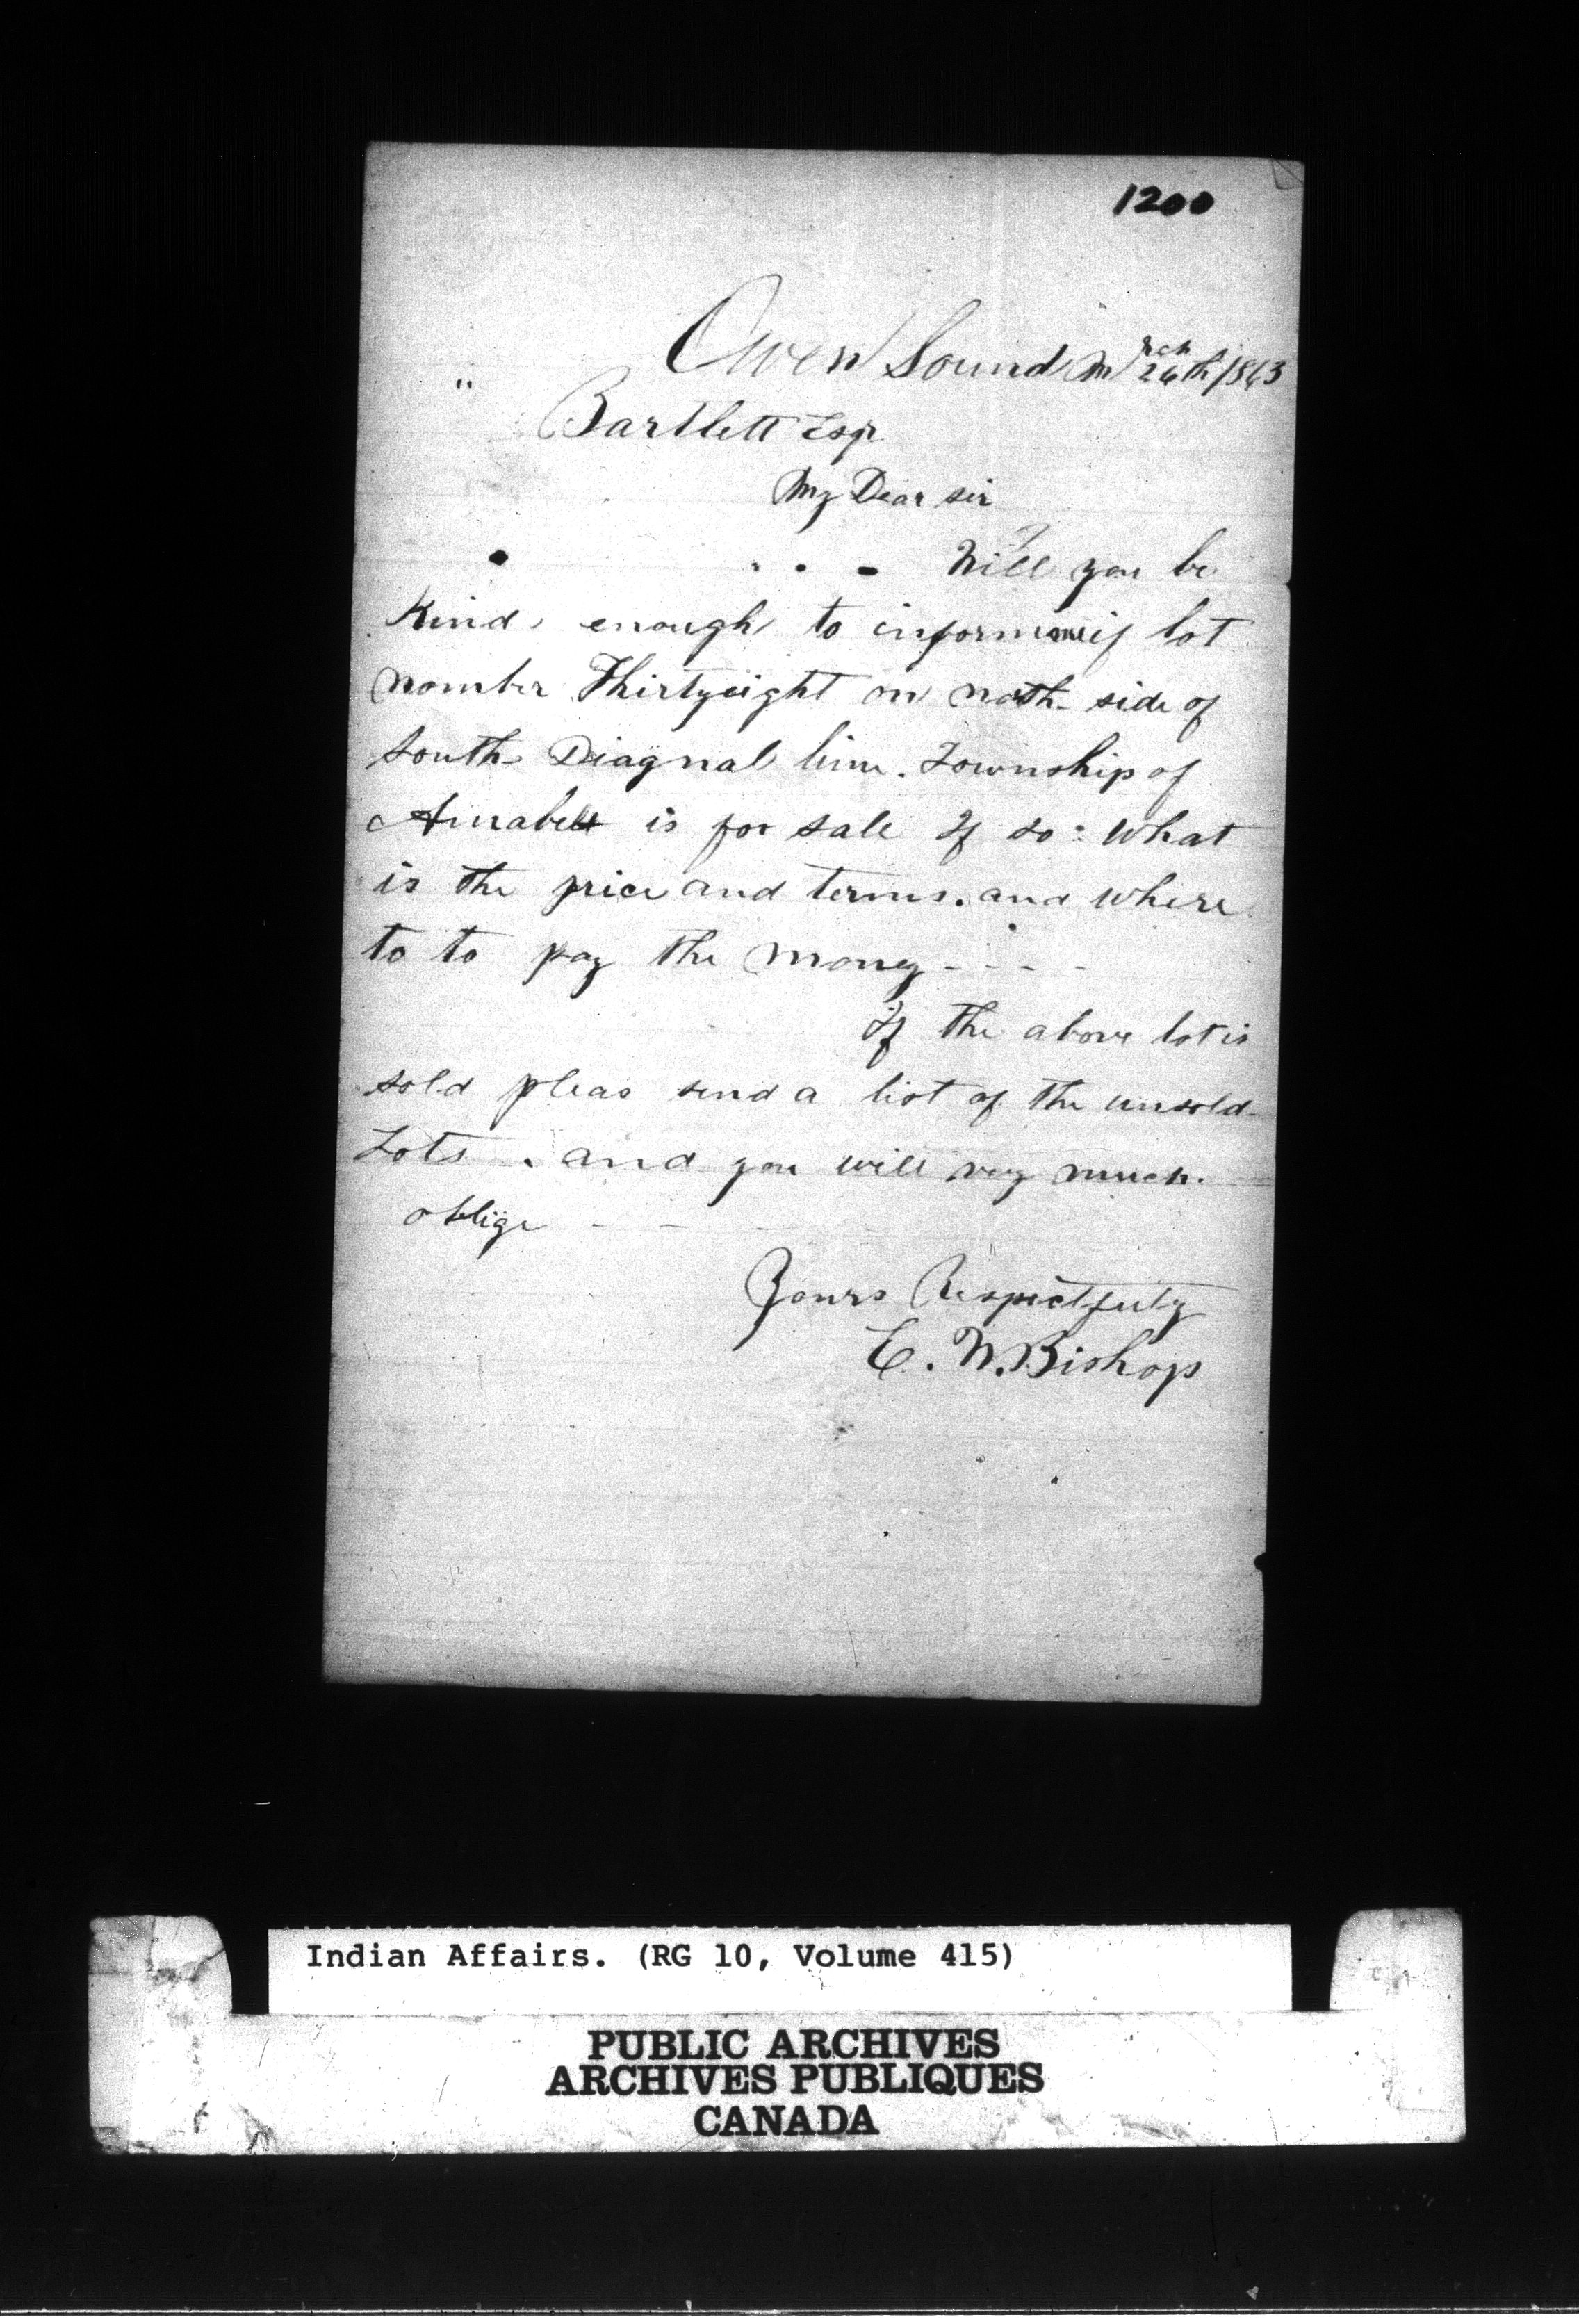 1200
Owen Sound Mrch 26th/1863
" Bartlett Esqr
My Dear sir
Will you be
Kind enough to inform me if lot
nomber Thirtyeight on north side of
South Diagnal line. Township of
Amabell is for sale If so: what
is the price and terms. and where
to to pay the money - - - -
if the above lot is
sold pleas send a list of the unsold
Lots . and you will very much.
oblige - -
Yours Respectfuly
E. W. Bishop
Indian Affairs. (RG 10, Volume 415)
PUBLIC ARCHIVES
ARCHIVES PUBLIQUES
CANADA